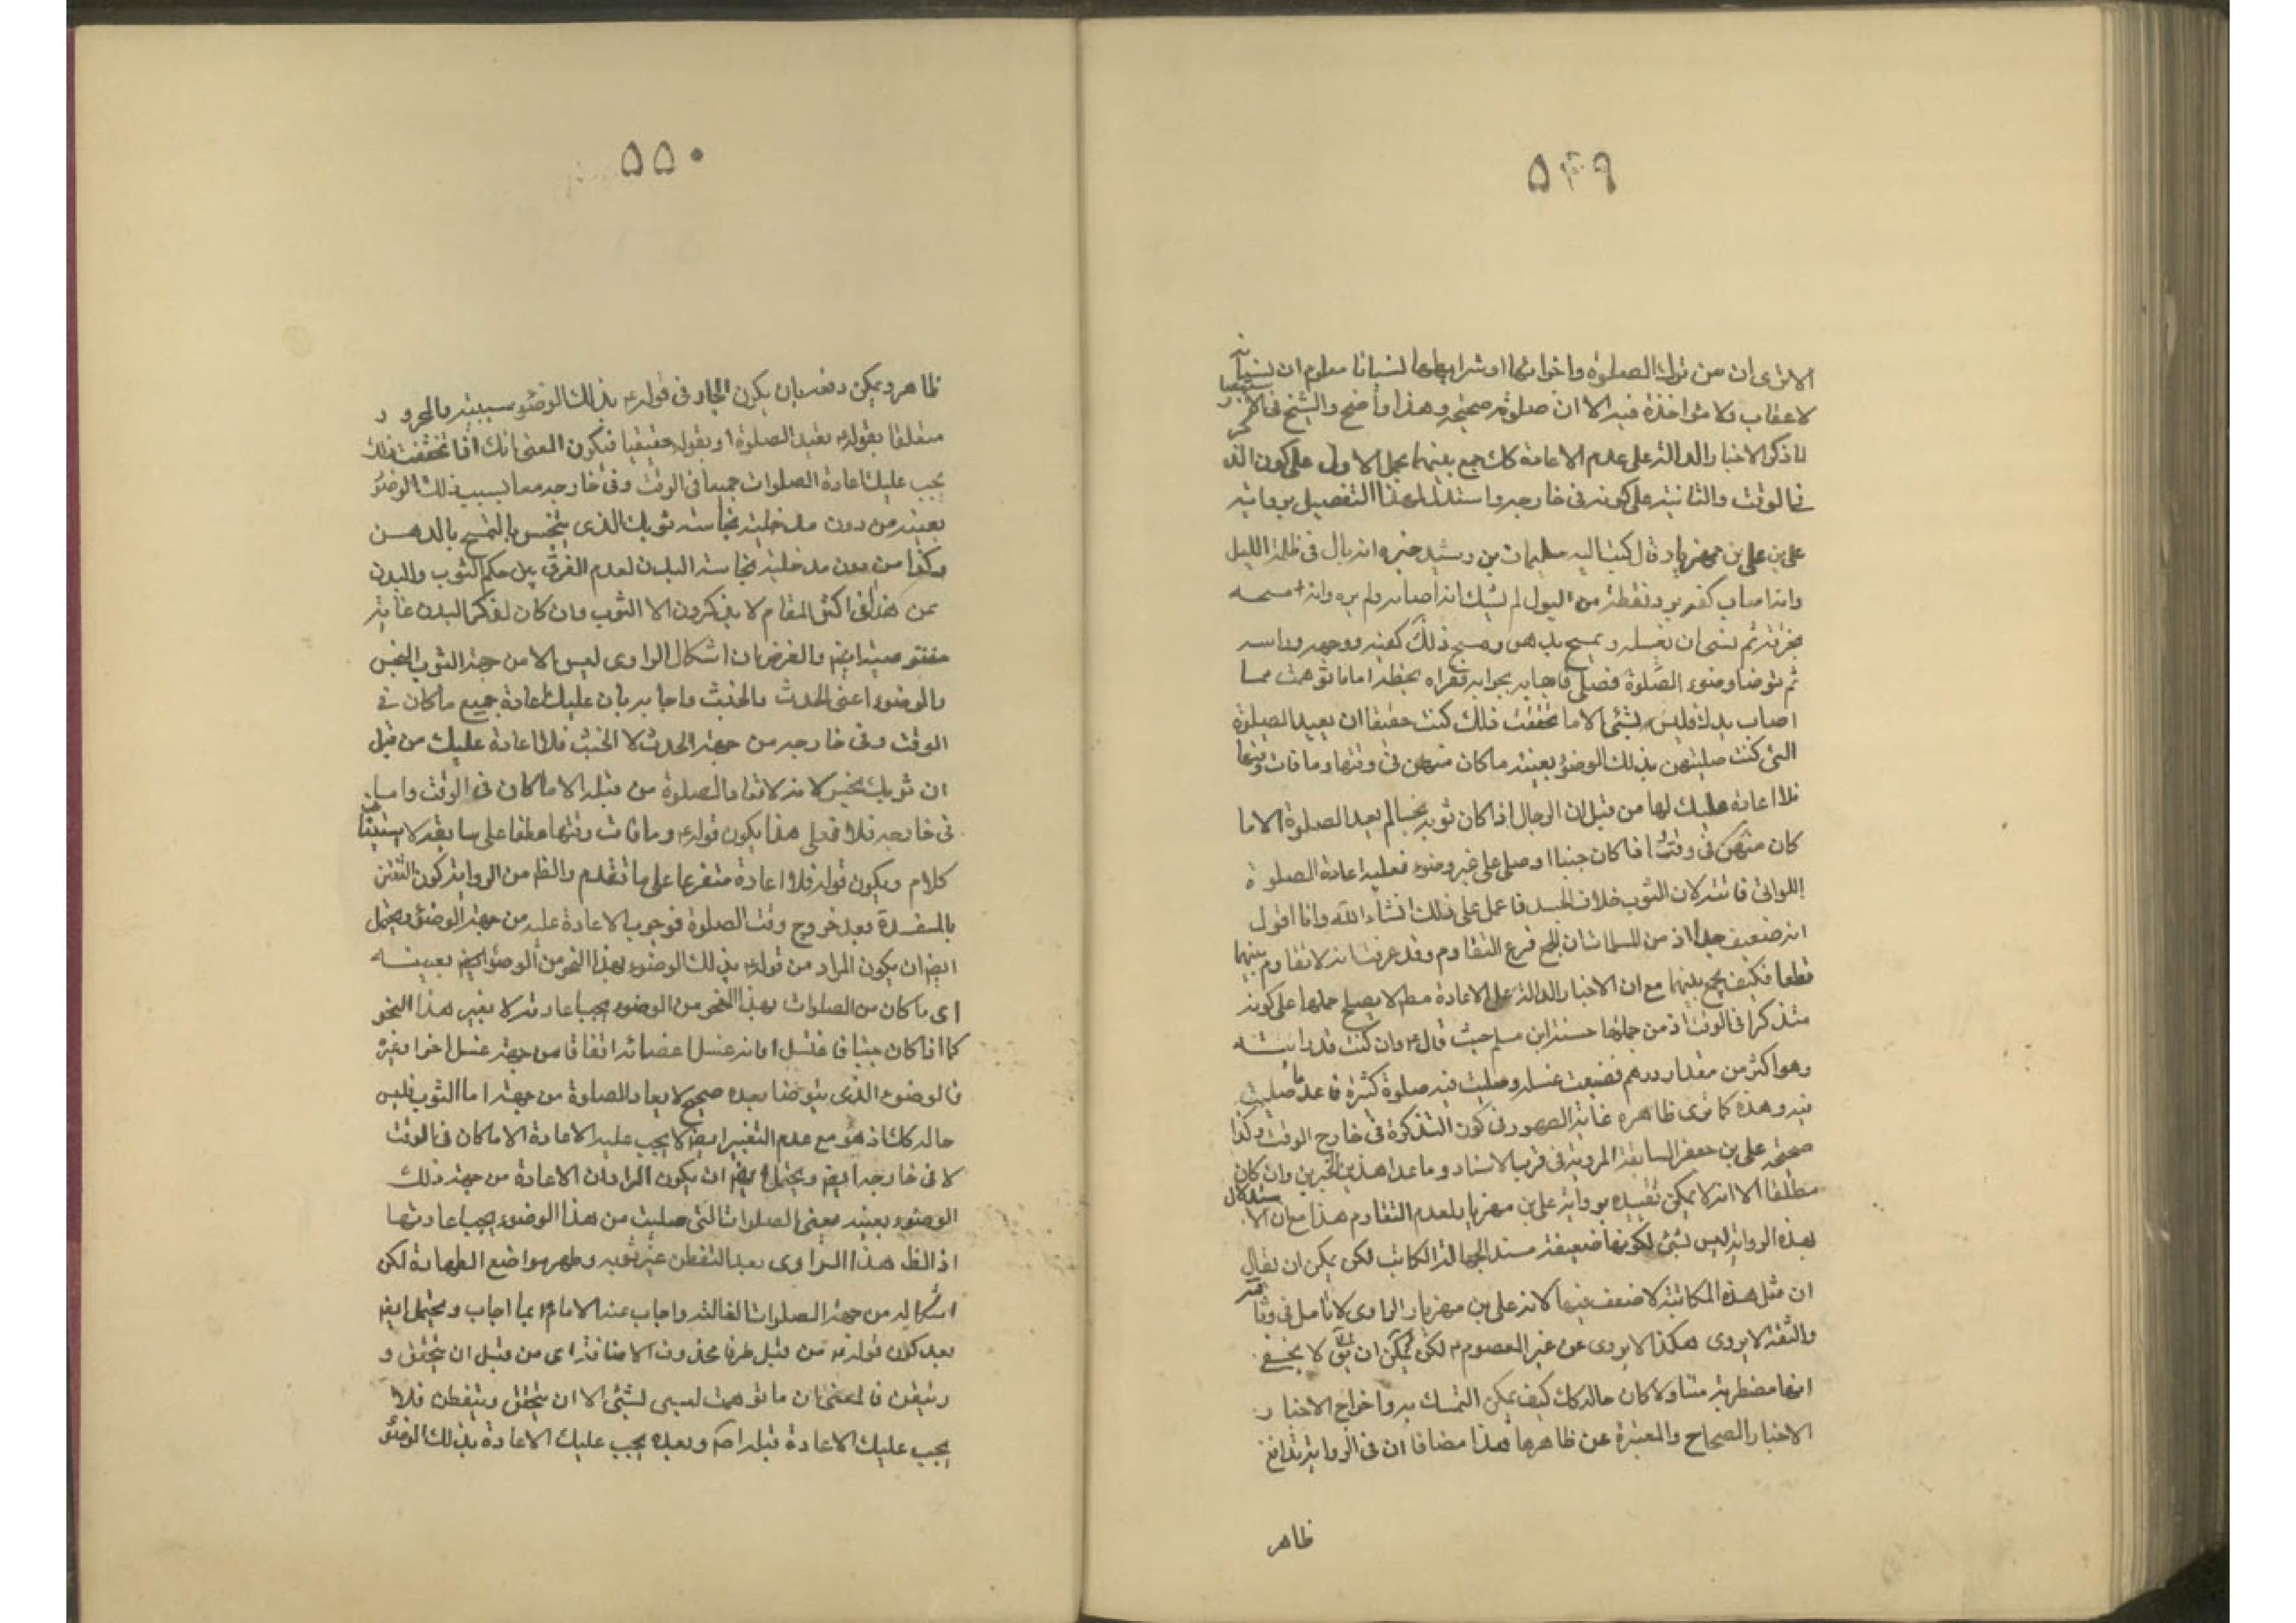 ۵۴۹
الا ترى ان من ترك الصلوة واخواتها او شرايطها نسيانا معلوم ان نسيانه
لا عقاب ولا مؤاخذة فيه الا ان صلوته صحيحة وهذا واضح والشيخ في الاستبصار
لما ذكر الاخبار الدالة على عدم الاعادة كك جمع بينهما بحمل الاول على كون التذكر
في الوقت والثانية على كونه في خارجه واستدل لهذا التفصيل برواية
على بن مهزيار قال كتب اليه سليمان بن رشيد خبره انه بال في ظلمة الليل
وانه اصاب كفه برد نقطة من البول لم يشك انه اصابه ولم يره وانه مسحه
بخرقة ثم نسى ان يغسله وتمسح بدهن ومسح ذلك كفيه ووجهه وراسه
ثم توضا وضوء الصلوة فصلى فاجابه بجواب قراه بخطه اما ما توهمت مما
اصاب يدك فليس بشئ الا ما تحققت فلك كنت حقيقا ان تعيد الصلوة
التى كنت صليتهن بذلك الوضوء بعينه ما كان منهن في وقتها وما فات وقتها
فلا اعادة عليك لها من قبل ان الرجل اذا كان ثوبه نجسا لم يعد الصلوة الا ما
كان منهن في وقت واذا كان جنبا او صلى على غير وضوء فعليه اعادة الصلوة
اللواتى فاتته لان الثوب خلاف الجسد فاعمل على ذلك انشاء الله وانا اقول
انه ضعيف جدا اذ من المسلمات ان الجمع فرع التقاوم وقد عرفت انه لا تقاوم بينهما
قطعا فكيف يجمع بينهما مع ان الاخبار الدالة على الاعادة مط لا يصلح حملها على كونه
متذكرا في الوقت اذ من جملتها حسنة ابن مسلم حيث قال ع وان كنت قد رايته
وهو اكثر من مقدار درهم فضيعت غسله وصليت فيه صلوة كثيرة فاعد ما صليت
فيه وهذه كما ترى ظاهرة غاية الظهور في كون التذكرة في خارج الوقت وكذا
صحيحة على بن جعفر السابقة المروية في قرب الاسناد وما عدا هذين الخبرين وان كان
مطلقا الا انه لا يمكن تقييده برواية على بن مهزيار لعدم التقاوم هذا مع ان الاستدلال
بهذه الرواية ليس بشئ لكونها ضعيفة مسند الجهالة الكاتب لكن يمكن ان يقال
ان مثل هذه المكاتبة لا ضعف فيها لانه على بن مهزيار الراوى لا تامل في وثاقته
والثقة لا يروى هكذا الا يروى عن غير المعصوم ع لكن يمكن ان يق لا يخفى
انها مضطربة متنا ولا كان حاله كك كيف يمكن التمسك به واخراج الاخبار
الاخبار الصحاح والمعتبرة عن ظاهرها هذا مضافا ان في الرواية تدافع
ظاهر
۵۵۰
ظاهر ويمكن دفعه بان يكون الجار في قوله ع بذلك الوضوء سببية والمجرور
متعلقا بقوله ع تعيد الصلوة او بقوله حقيقيا فيكون المعنى انك اذا تحققت ذلك
يجب عليك اعادة الصلوات جميعا في الوقت وفي خارجه معا بسبب ذلك الوضوء
بعينه من دون مدخلية نجاسة ثوبك الذى ينجس بالتمسح بالدهن
وكذا من دون مدخلية نجاسة البدن لعدم الفرق بين حكم الثوب والبدن
عن هذا في اكثر المقام لا يذكرون الا الثوب وان كان لذكر البدن غاية
مقتو صيته ايض والغرض ان اشكال الراوى ليس الا من جهة الثوب النجس
والوضوء اعنى الحدث والخبث واجابه بان عليك اعادة جميع ما كان في
الوقت وفي خارجه من جهة الحدث لا الخبث فلا اعادة عليك من قبل
ان ثوبك نجس لانه لا تعاد الصلوة من قبله الا ما كان في الوقت واما
في خارجه فلا فعلى هذا يكون قوله ع وما فات وقتها عطفا على سابقه لا استينافا
كلام ويكون قوله فلا اعادة متفرعا على ما تقدم والظ من الرواية كون التفطن
بالمفسدة بعد خروج وقت الصلوة فوجوب الاعادة عليه من جهة الوضوء ويحتمل
ايض ان يكون المراد من قوله ع بذلك الوضوء بهذا النحو من الوضوء ايض بعينه
اى ما كان من الصلوات بهذا النحو من الوضوء يجب اعادته لا بغير هذا النحو
كما اذا كان جنبا فاغتسل او انه غسل اعضائه اتفاقا من جهة غسل اخر او غيره
فالوضوء الذى يتوضا بعده صحيح لا يعاد الصلوة من جهته اما الثوب فليس
حاله كك اذ هو مع عدم التغيير ايض لا يجب عليه الاعادة الا ما كان في الوقت
لا في خارجه ايض ويحتمل ايض ان يكون المراد ان الاعادة من جهة ذلك
الوضوء بعينه بمعنى الصلوات التى صليت من هذا الوضوء يجب اعادتها
اذ الظ هذا الراوى بعد التفطن غير ثوبه وطهر مواضع الطهارة لكن
اشكاله من جهة الصلوات الفائتة واجاب عنه الامام ع بما اجاب ويحتمل ايض
بعد كون قوله ع من قبل ظرفا محذوف الاضافة اى من قبل ان تحقق و
وتيقن فالمعنى ان ما توهمت ليس بشئ الا ان تتحقق وتتفطن فلا
يجب عليك الاعادة قبله اصلا وبعده يجب عليك الاعادة بذلك الوضوء